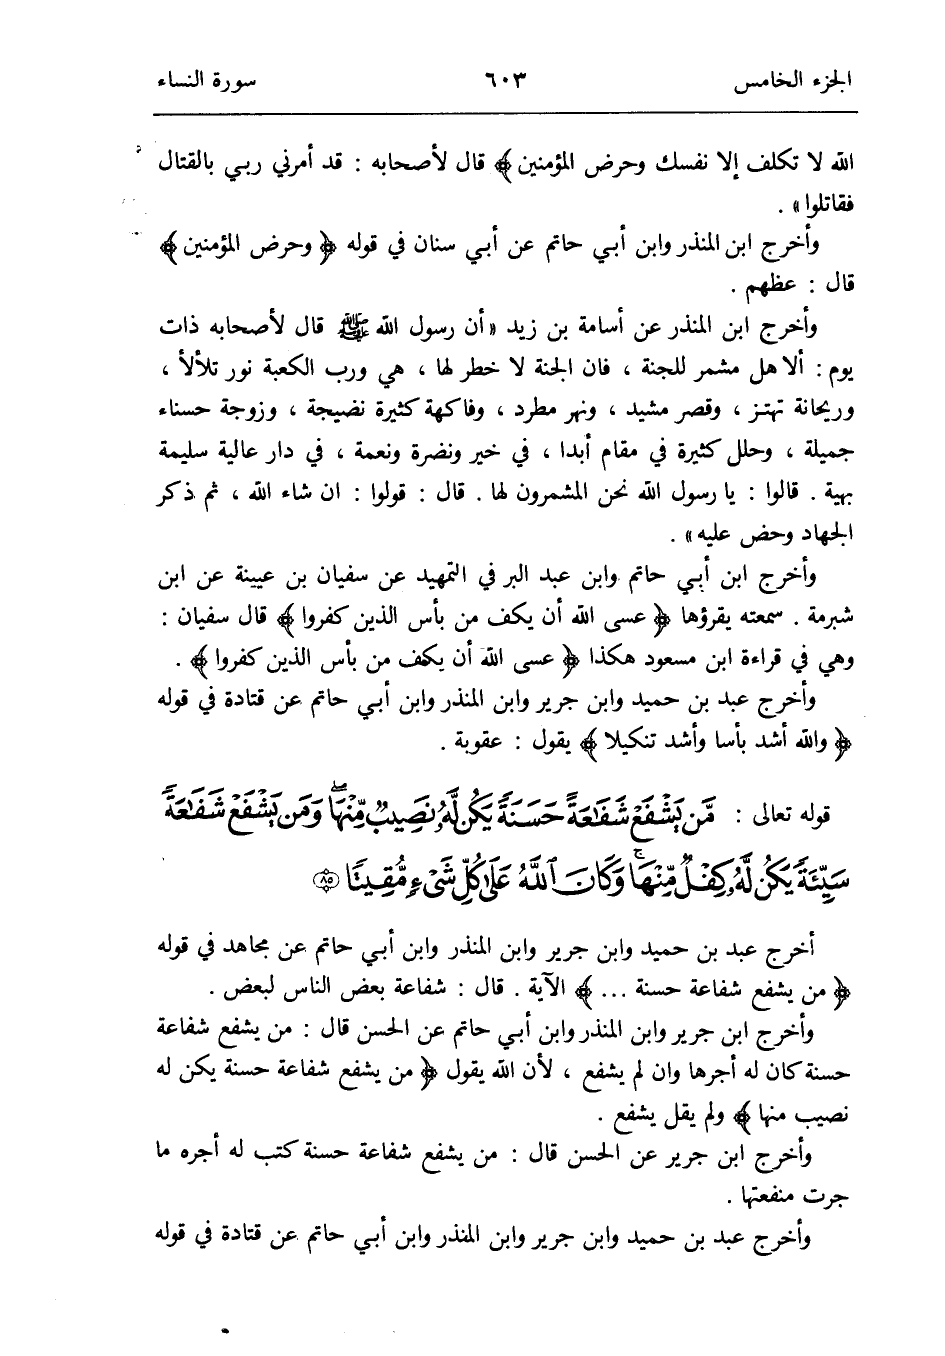 الجزء الخامس ٦٠٣ سورة النساء
الله لا تكلف إلا نفسك وحرض المؤمنين﴾ قال لأصحابه : قد أمرني ربي بالقتال
فقاتلوا» .
وأخرج ابن المنذر وابن أبي حاتم عن أبي سنان في قوله ﴿وحرض المؤمنين﴾
قال : عظهم .
وأخرج ابن المنذر عن أسامة بن زيد «أن رسول الله ﷺ قال لأصحابه ذات
يوم : ألا هل مشمر للجنة ، فان الجنة لا خطر لها ، هي ورب الكعبة نور تلألأ ،
وريحانة تهتز ، وقصر مشيد ، ونهر مطرد ، وفاكهة كثيرة نضيجة ، وزوجة حسناء
جميلة ، وحلل كثيرة في مقام أبدا ، في خير ونضرة ونعمة ، في دار عالية سليمة
بهية . قالوا : يا رسول الله نحن المشمرون لها . قال : قولوا : ان شاء الله ، ثم ذكر
الجهاد وحض عليه» .
وأخرج ابن أبي حاتم وابن عبد البر في التمهيد عن سفيان بن عيينة عن ابن
شبرمة . سمعته يقرؤها ﴿عسى الله أن يكف من بأس الذين كفروا﴾ قال سفيان :
وهي في قراءة ابن مسعود هكذا ﴿عسى الله أن يكف من بأس الذين كفروا﴾ .
وأخرج عبد بن حميد وابن جرير وابن المنذر وابن أبي حاتم عن قتادة في قوله
﴿والله أشد بأسا وأشد تنكيلا﴾ يقول : عقوبة .
قوله تعالى : مَّن يَشْفَعْ شَفَٰعَةً حَسَنَةً يَكُن لَّهُۥ نَصِيبٌ مِّنْهَا ۖ وَمَن يَشْفَعْ شَفَٰعَةً
سَيِّئَةً يَكُن لَّهُۥ كِفْلٌ مِّنْهَا ۗ وَكَانَ ٱللَّهُ عَلَىٰ كُلِّ شَىْءٍ مُّقِيتًا ٨٥
أخرج عبد بن حميد وابن جرير وابن المنذر وابن أبي حاتم عن مجاهد في قوله
﴿من يشفع شفاعة حسنة ...﴾ الآية . قال : شفاعة بعض الناس لبعض .
وأخرج ابن جرير وابن المنذر وابن أبي حاتم عن الحسن قال : من يشفع شفاعة
حسنة كان له أجرها وان لم يشفع ، لأن الله يقول ﴿من يشفع شفاعة حسنة يكن له
نصيب منها﴾ ولم يقل يشفع .
وأخرج ابن جرير عن الحسن قال : من يشفع شفاعة حسنة كتب له أجره ما
جرت منفعتها .
وأخرج عبد بن حميد وابن جرير وابن المنذر وابن أبي حاتم عن قتادة في قوله